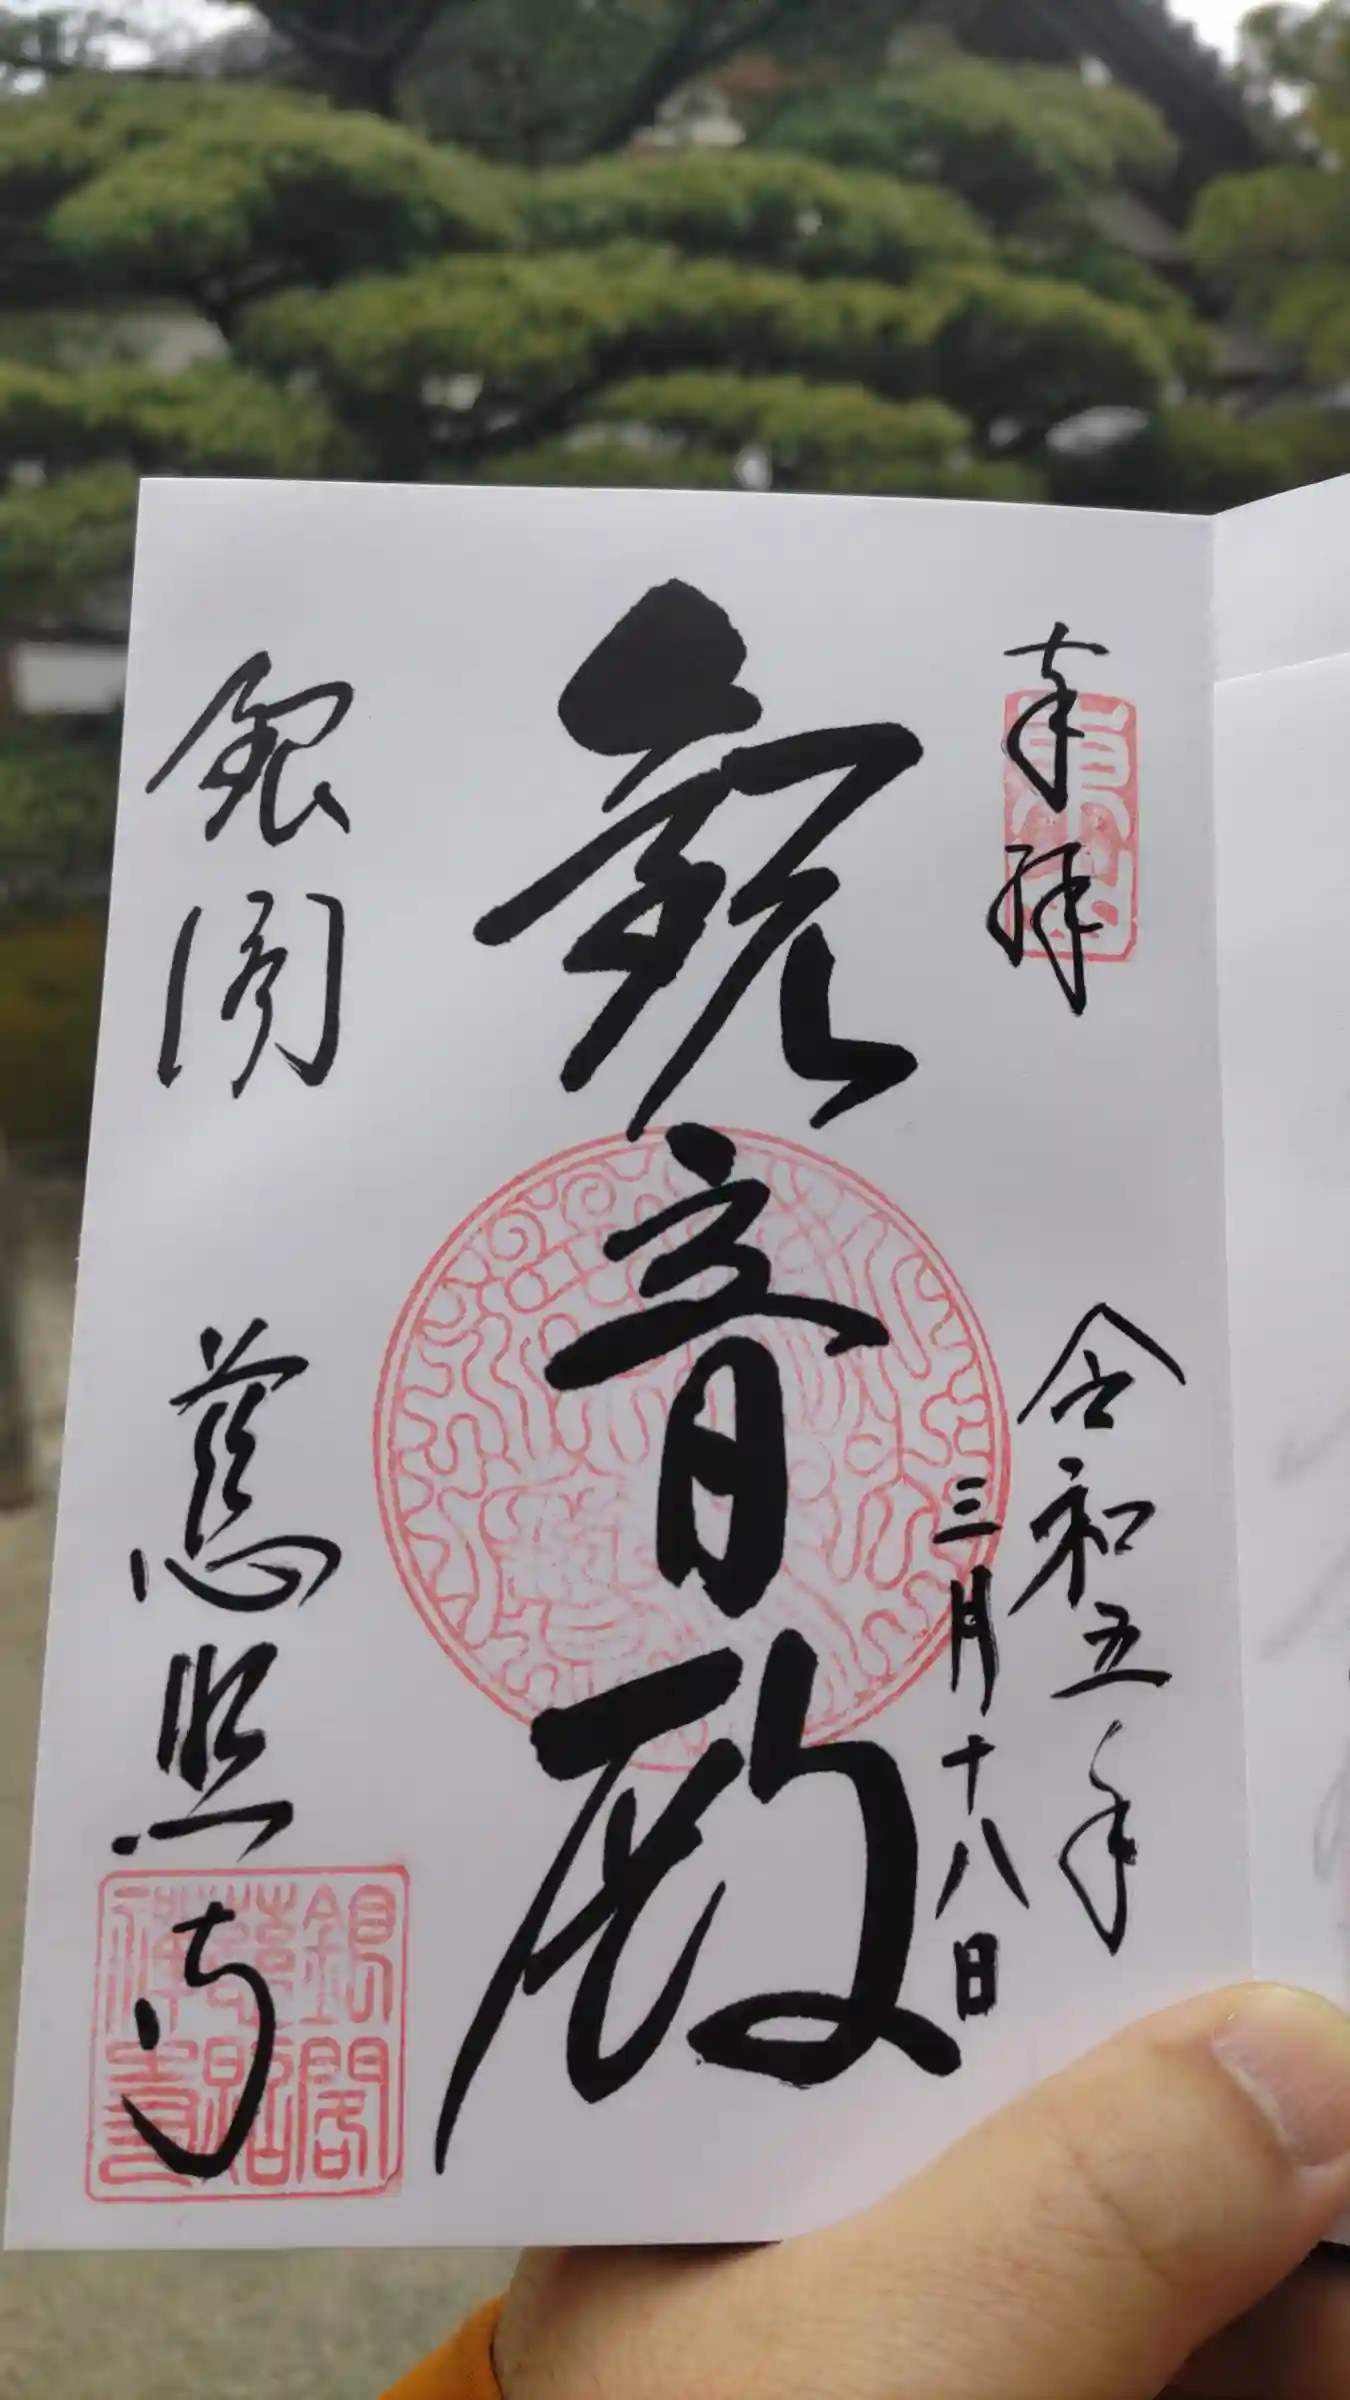 奉拝
令和五年
三月十八日
観音殿
銀閣
慈照寺
東山
銀閣
慈照
禅寺